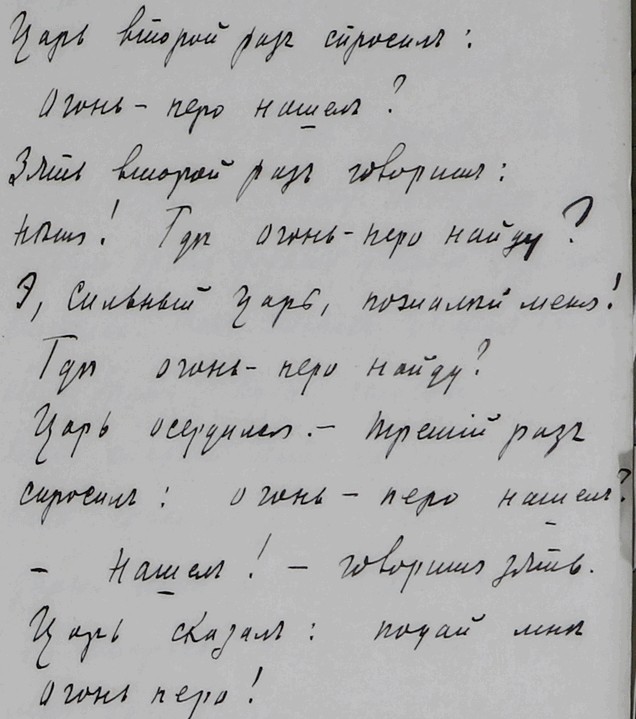 Царь второй разъ спросилъ:
Огонь-перо нашелъ?
Зять второй разъ говоритъ:
Нѣтъ! Гдѣ огонь-перо найду?
Э, сильный царь, пожалѣй меня!
Гдѣ огонь-перо найду?
Царь осердился.- Третій разъ
спросилъ: огонь-перо нашелъ?
- Нашелъ! - говоритъ зять.
Царь сказалъ: подай мнѣ
огонь перо!